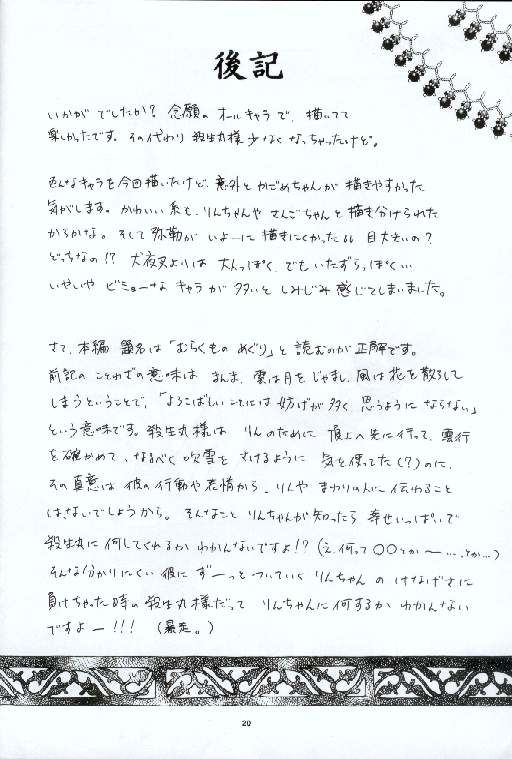 後記
いかがでしたか？ 念願のオールキャラで、描いてて
楽しかったです。その代わり殺生丸様少なくなっちゃったけど。
色んなキャラを今回描いたけど、意外とかごめちゃんが描きやすかった
気がします。かわいい系も、りんちゃんやさんごちゃんと描き分けられた
からかな。そして弥勒がいよーに描きにくかった 目大きいの？
どっちなの!? 犬夜叉よりは大人っぽく、でもいたずらっぽく…
いやいやビミョーなキャラが多いとしみじみ感じてしまいました。
さて、本編 題名は「むらくものめぐり」と読むのが正解です。
前記のことわざの意味は まんま、雲は月をじゃまし、風は花を散らして
しまうということで、「よろこばしいことには妨げが多く 思うようにならない」
という意味です。殺生丸様は りんのために 頂上へ先に行って、雲行
を確かめて、なるべく吹雪をさけるように 気を使ってた(？)のに、
その真意は彼の行動や表情から、りんやまわりの人に伝わること
はないでしょうから。そんなこと りんちゃんが知ったら 幸せいっぱいで
殺生丸に何してくれるかわかんないですよ!? (え、何って〇〇とか〜……とか…)
そんな分かりにくい彼に ずーっとついていく りんちゃんの けなげさに
負けちゃった時の殺生丸様だって りんちゃんに何するか わかんない
ですよー!!! (暴走。)
20